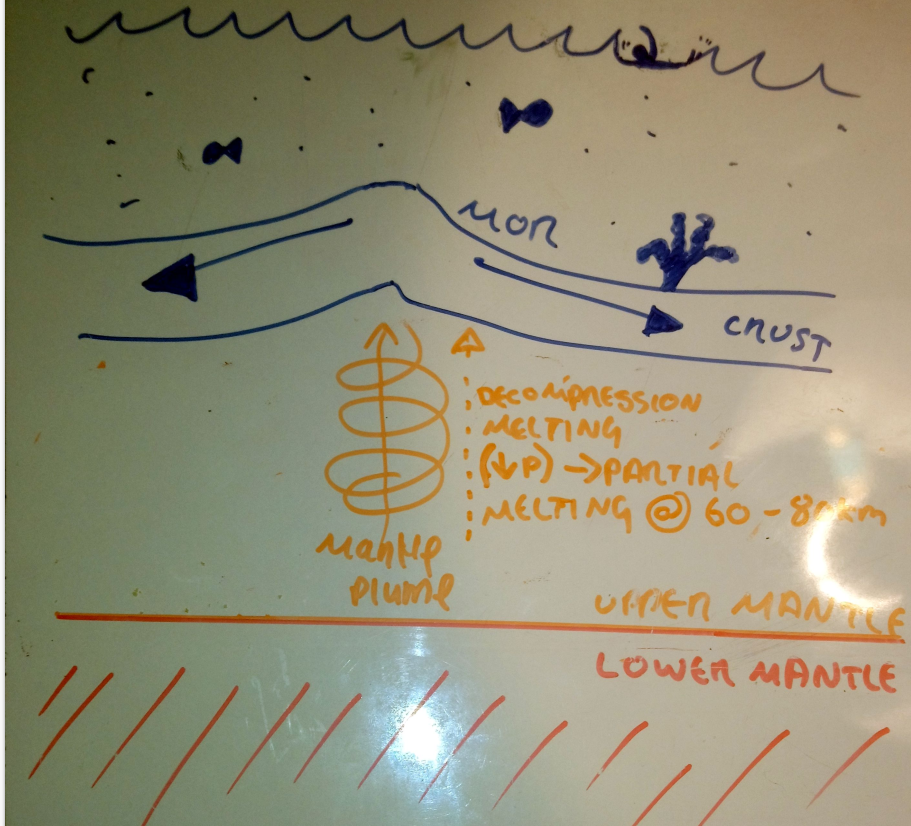 MOR
CRUST
DECOMPRESSION
MELTING
(↓P) → PARTIAL
MELTING @ 60 - 80km
Mantle
plume
UPPER MANTLE
LOWER MANTLE